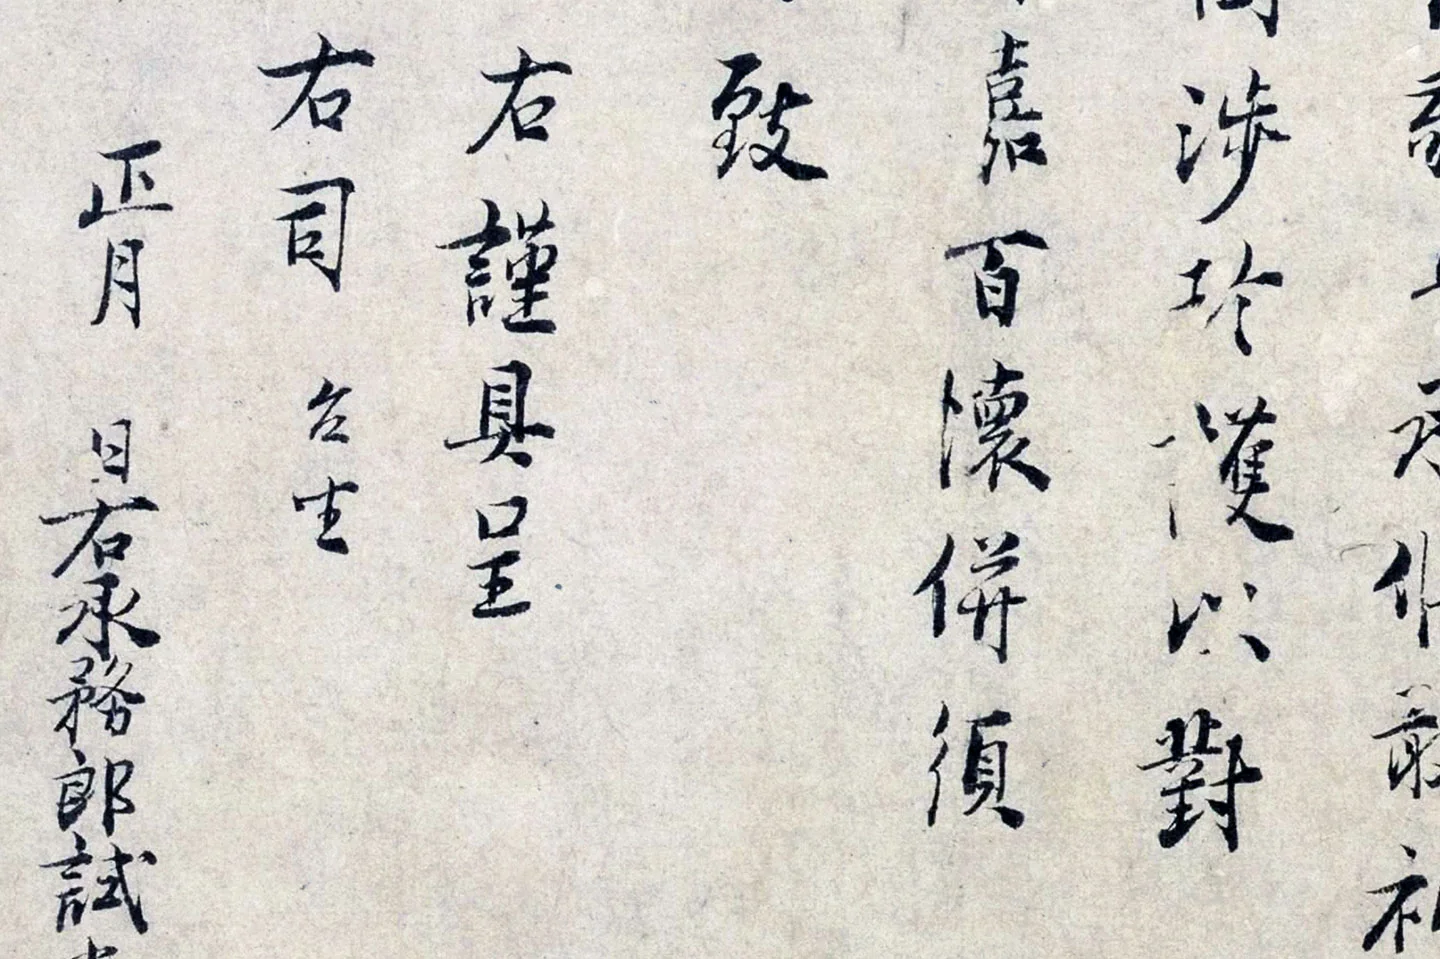 作
涉珍護以對
嘉百懷併須
致
右謹具呈
右司 台坐
正月 日右承務郎試